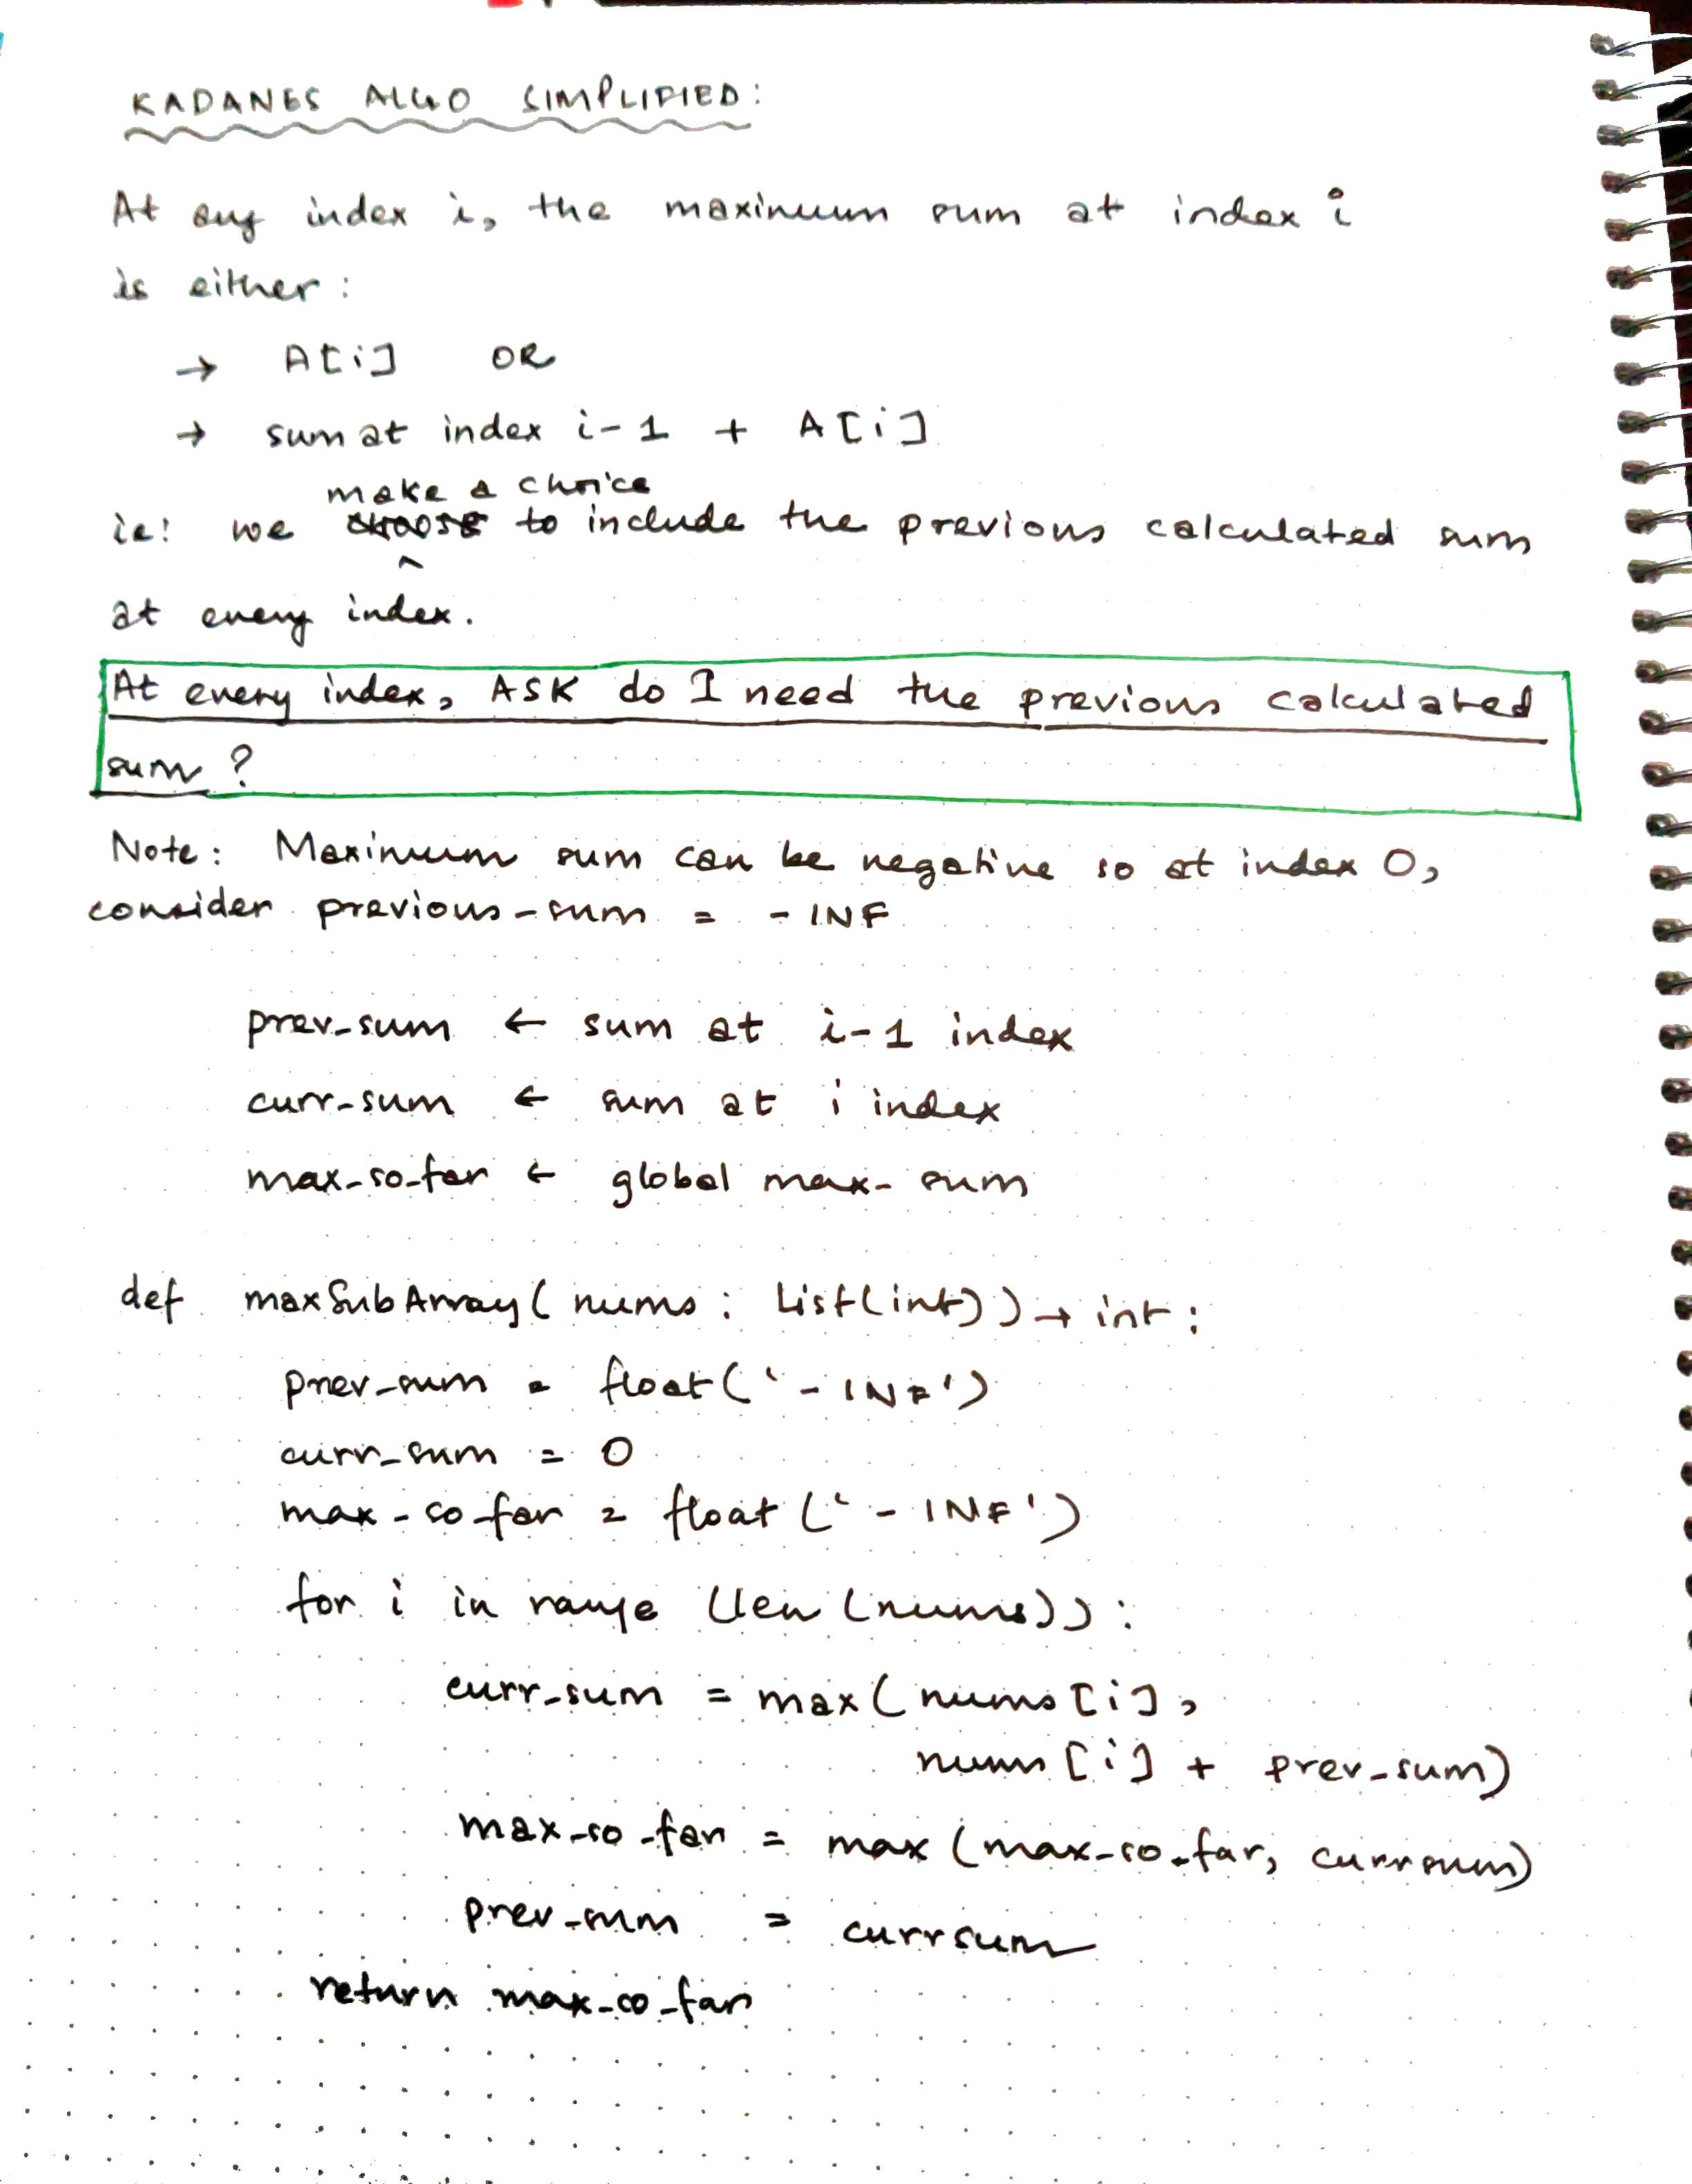 KADANES ALGO SIMPLIFIED:
At any index i, the maximum sum at index i
is either:
→ A[i] OR
→ sum at index i-1 + A[i]
make a choice
ie: we choose to include the previous calculated sum
^
at every index.
At every index, ASK do I need the previous calculated
sum ?
Note: Maximum sum can be negative so at index 0,
consider previous-sum = -INF
prev_sum ← sum at i-1 index
curr_sum ← sum at i index
max_so_far ← global max-sum
def maxSubArray(nums: List(int)) → int:
prev_sum = float('-INF')
curr_sum = 0
max_so_far = float('-INF')
for i in range (len(nums)):
curr_sum = max(nums[i],
nums[i] + prev_sum)
max_so_far = max(max_so_far, currsum)
prev_sum = currsum
return max_so_far